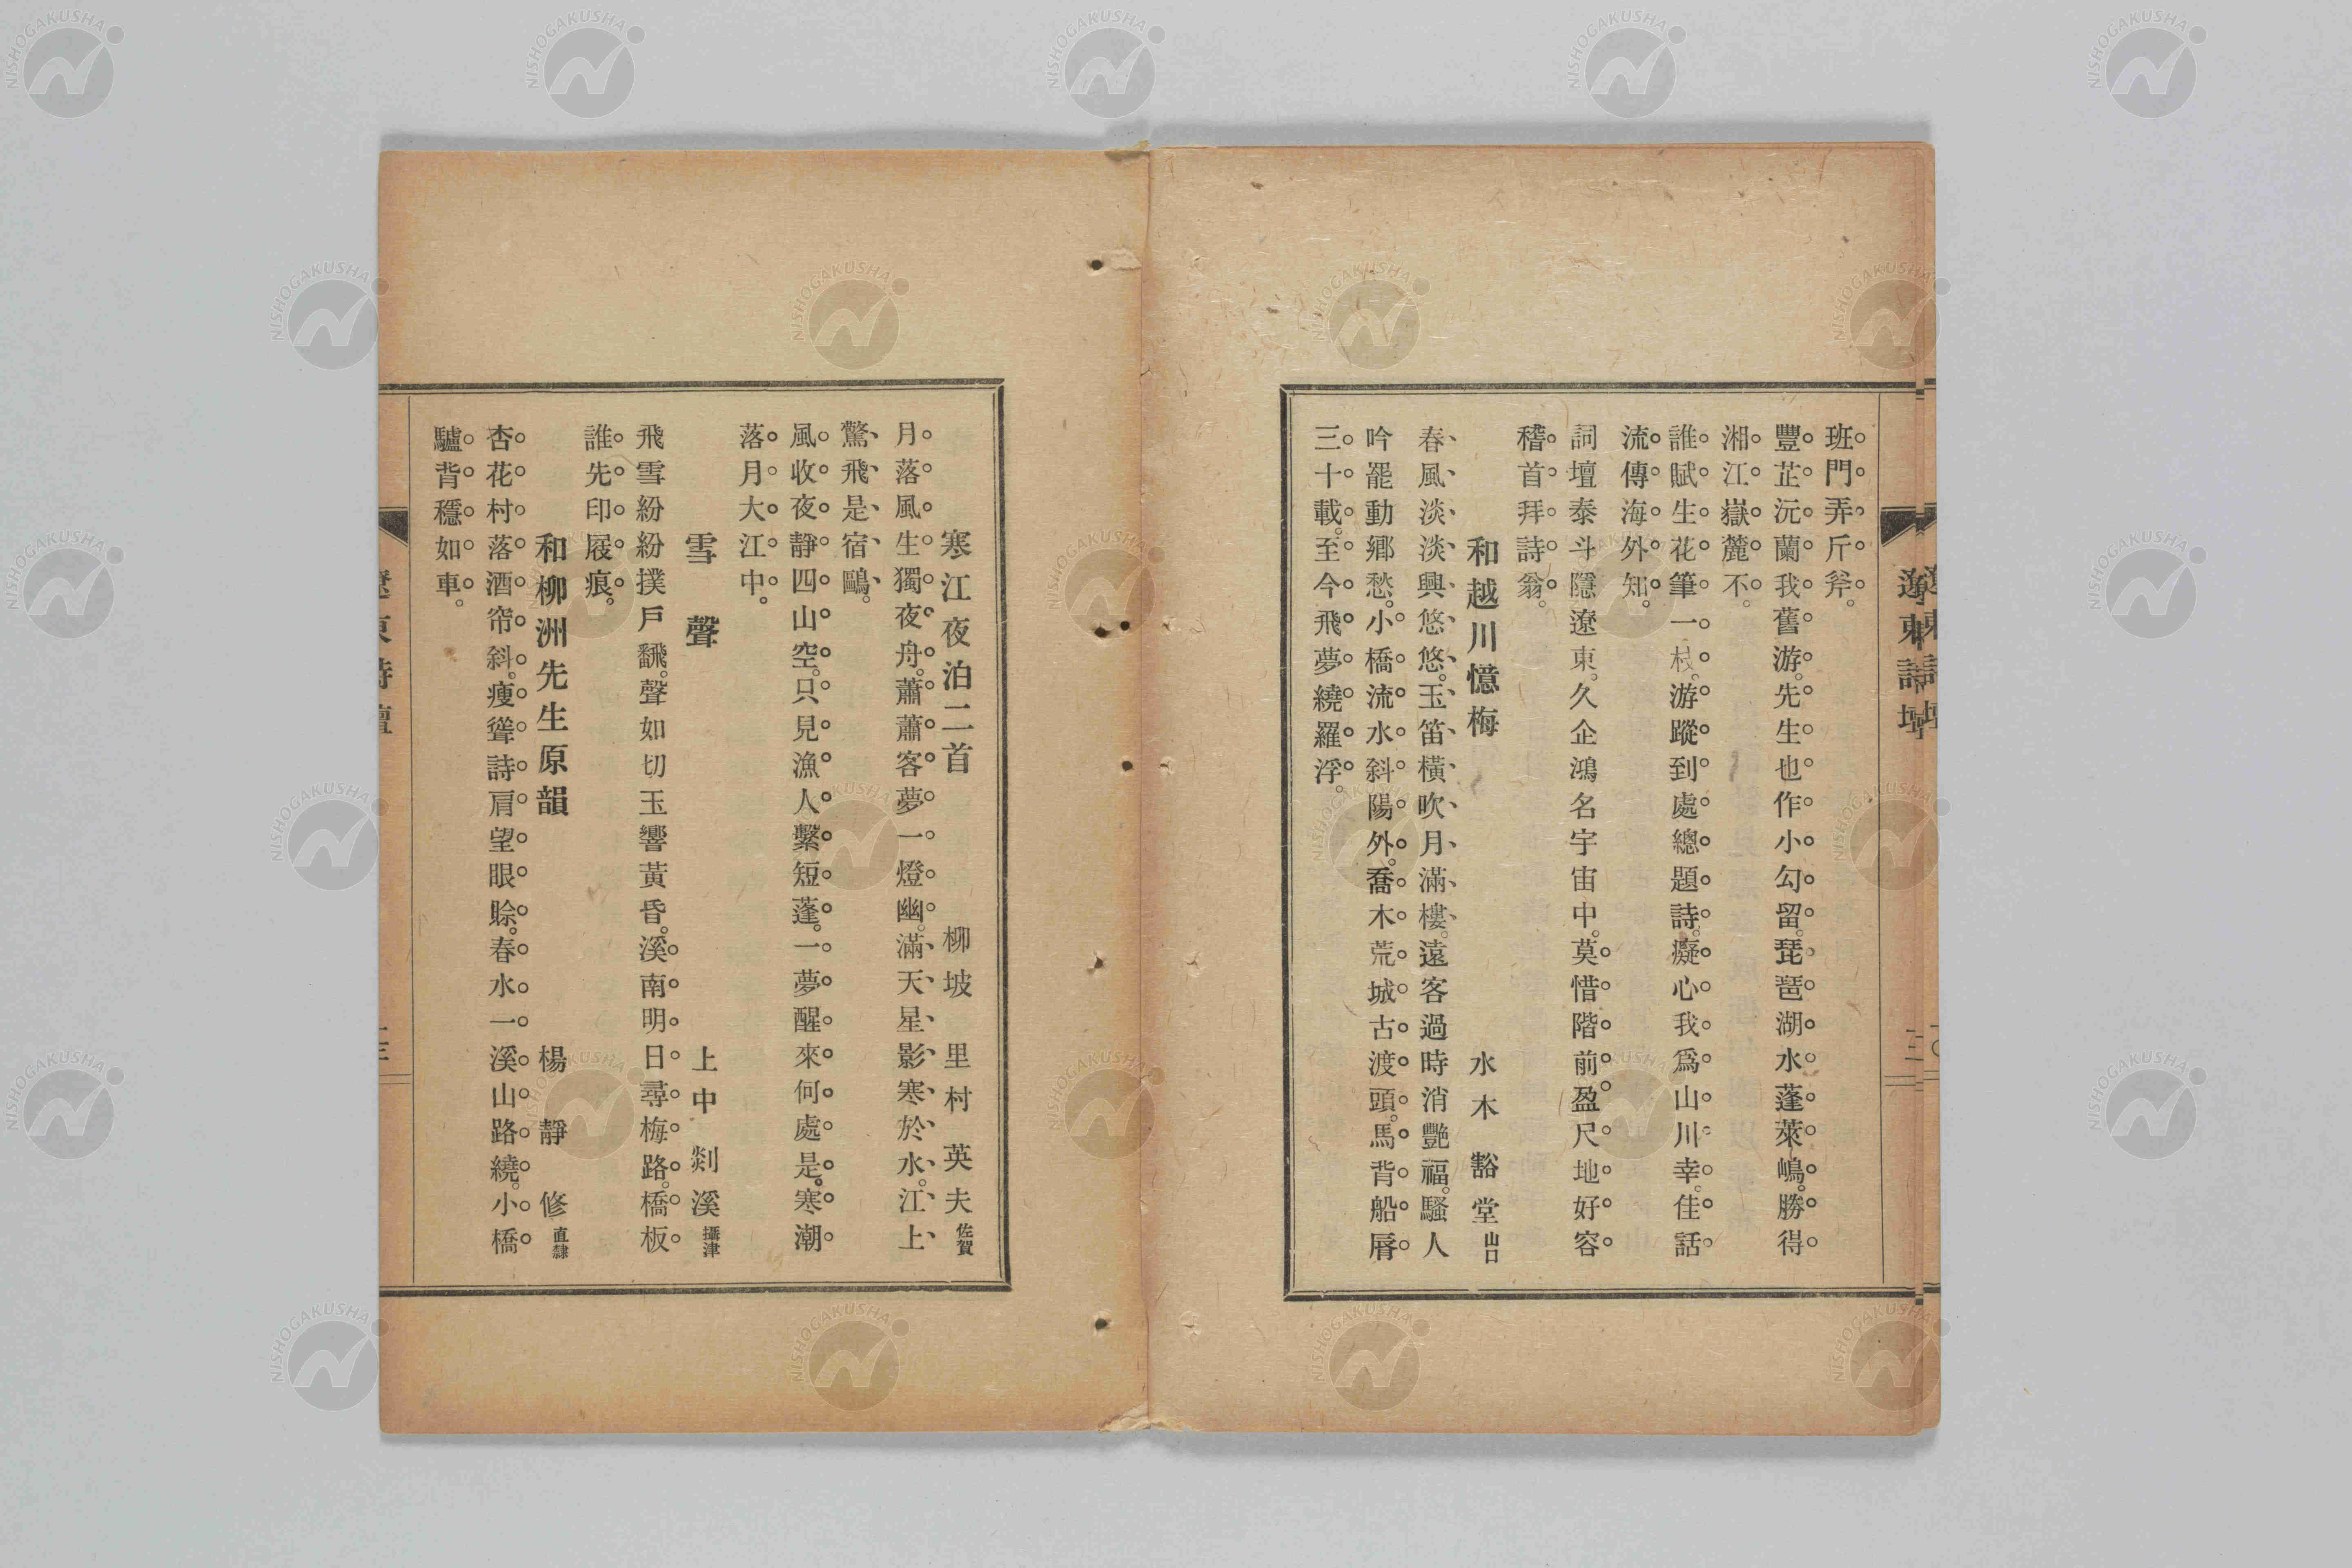 遼東詩壇
班門弄斤斧。
豐芷沅蘭我舊游。先生也作小勾留。琵琶湖水蓬萊嶋。勝得
湘江嶽麓不。
誰賦生花筆一枝。游蹤到處總題詩。癡心我爲山川幸。佳話
流傳海外知。
詞壇泰斗隱遼東。久企鴻名宇宙中。莫惜階前盈尺地。好容
稽首拜詩翁。
和越川憶梅 水木豁堂 山口
春風淡淡興悠悠。玉笛橫吹月滿樓。遠客過時消艷福。騷人
吟罷動鄉愁。小橋流水斜陽外。喬木荒城古渡頭。馬背船脣
三十載。至今飛夢繞羅浮。
寒江夜泊二首 柳坡 里村英夫 佐賀
月落風生獨夜舟。蕭蕭客夢一燈幽。滿天星影寒於水。江上
驚飛是宿鷗。
風收夜靜四山空。只見漁人繫短蓬。一夢醒來何處是。寒潮
落月大江中。
雪聲 上中剡溪 攝津
飛雪紛紛撲戶飜。聲如切玉響黃昏。溪南明日尋梅路。橋板
誰先印屐痕。
和柳洲先生原韻 楊靜修 直隸
杏花村落酒帘斜。瘦聳詩肩望眼賒。春水一溪山路繞。小橋
驢背穩如車。
遼東詩壇
NISHOGAKUSHA